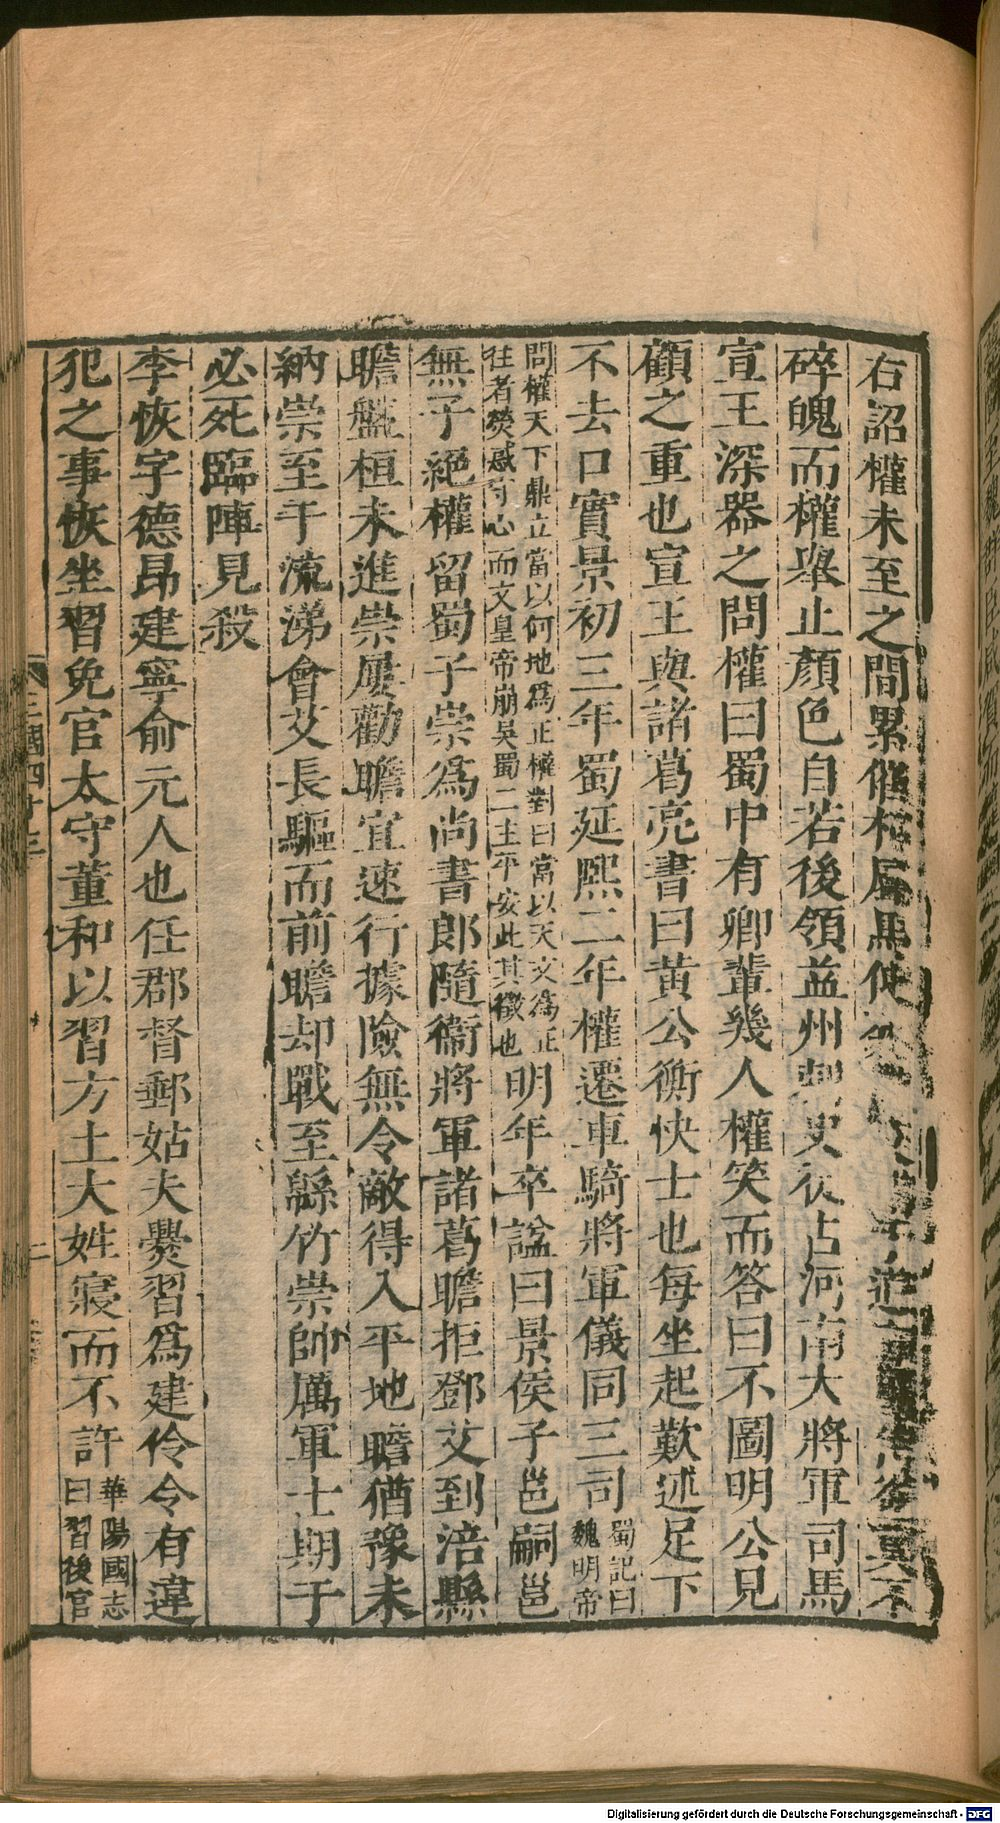 右詔權未至之間累催相屬馬使
碎魄而權舉止顏色自若後領益州刺史徙占河南大將軍司馬
宣王深器之問權曰蜀中有卿輩幾人權笑而答曰不圖明公見
顧之重也宣王與諸葛亮書曰黃公衡快士也每坐起歎述足下
不去口實景初三年蜀延熙二年權遷車騎將軍儀同三司蜀記曰魏明帝
問權天下鼎立當以何地爲正權對曰當以天文爲正
往者熒惑守心而文皇帝崩吳蜀二主平安此其徵也明年卒諡曰景侯子邕嗣邕
無子絕權留蜀子崇爲尚書郎隨衞將軍諸葛瞻拒鄧艾到涪縣
瞻盤桓未進崇屢勸瞻宜速行據險無令敵得入平地瞻猶豫未
納崇至于流涕會艾長驅而前瞻却戰至緜竹崇帥厲軍士期于
必死臨陣見殺
李恢字德昂建寧俞元人也任郡督郵姑夫爨習爲建伶令有違
犯之事恢坐習免官太守董和以習方土大姓寢而不許華陽國志曰習後官
三國四十三
Digitalisierung gefördert durch die Deutsche Forschungsgemeinschaft - DFG